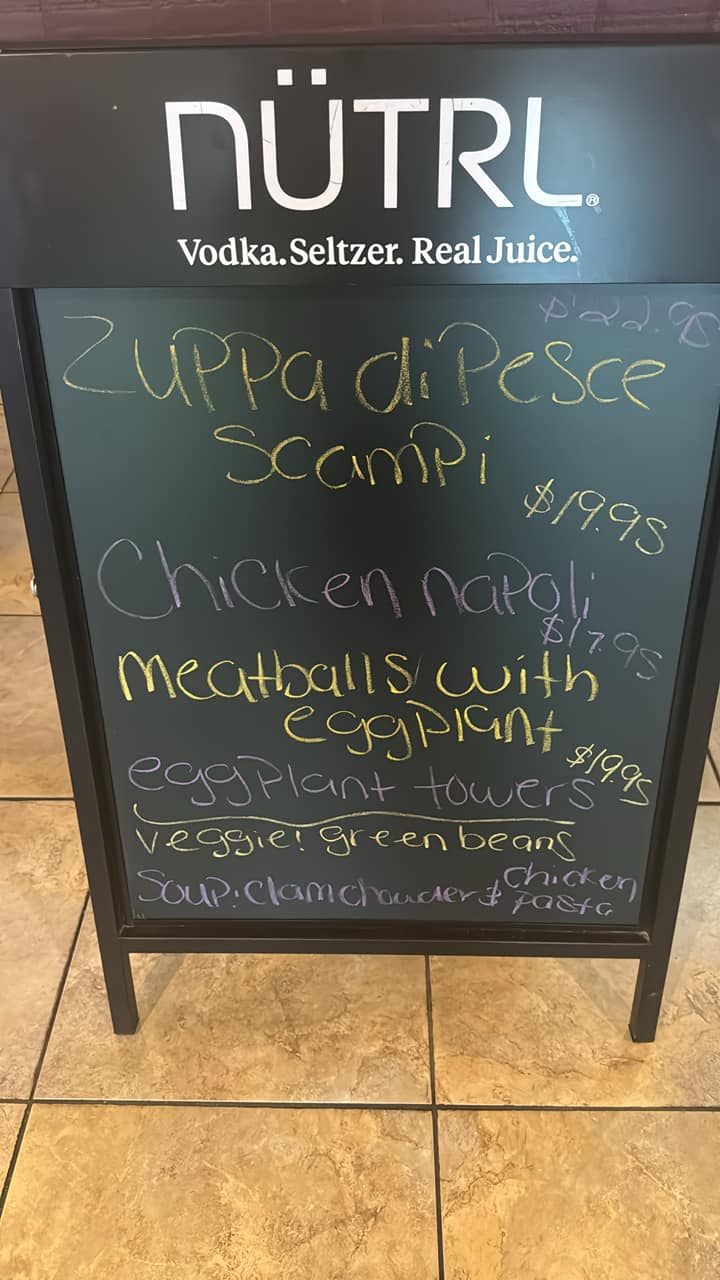 NÜTRL®
Vodka. Seltzer. Real Juice.
$22.95
Zuppa di Pesce
Scampi
$19.95
Chicken napoli
$17.95
meatballs with
eggplant
$19.95
eggplant towers
veggie: green beans
Soup: Clam chowder & Chicken
Pasta